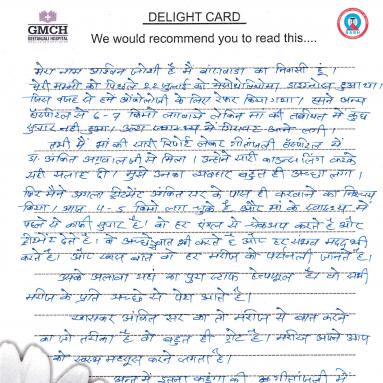 GMCH
GEETANJALI HOSPITAL
DELIGHT CARD
We would recommend you to read this....
मेरा नाम अश्विन जोशी है मैं बांसवाड़ा का निवासी हूं।
मेरी मम्मी को पिछले 22 जुलाई को मेसोथेलियोमा डाइग्नोस हुआ था।
जिस वजह से हमें ऑंकोलोजी के लिए रेफर किया गया। हमने अन्य
हॉस्पीटल से 6-7 किमो लगवाये लेकिन मां की तबीयत में कुछ
सुधार नहीं हुआ। उल्टा स्वास्थ्य में गिरावट आने लगी।
तभी मैं मां की सारी रिपोर्ट लेकर गीतांजली हॉस्पीटल में
डॉ. अंकित अग्रवाल जी से मिला। उन्होंने सारी काउन्सलिंग करके
सही सलाह दी। मुझे उनका व्यवहार बहुत ही अच्छा लगा।
फिर मैंने अगला ट्रीटमेंट अंकित सर के पास ही करवाने का निश्चय
किया। आज 4-5 किमो लग चुके है और मां के स्वास्थ्य में
पहले से काफी सुधार है। वो हर एंगल से चेकअप करते है और
ट्रीटमेंट देते है। वे अच्छे से बात भी करते है और हर संभव मदद भी
करते हैं। और खास बात वो हर मरीज को पर्सनली जानते है।
इसके अलावा यहां का पुरा स्टाफ हेल्पफुल है। वो सभी
मरीज के प्रति अच्छे से पेश आते है।
खासकर अंकित सर का तो मरीज से बात करने
का जो तरीका है वो बहुत ही ग्रेट है। मरीज अपने आप
को स्वस्थ महसूस करने लगता है।
अन्त में इतना कहूंगा की गीतांजली में